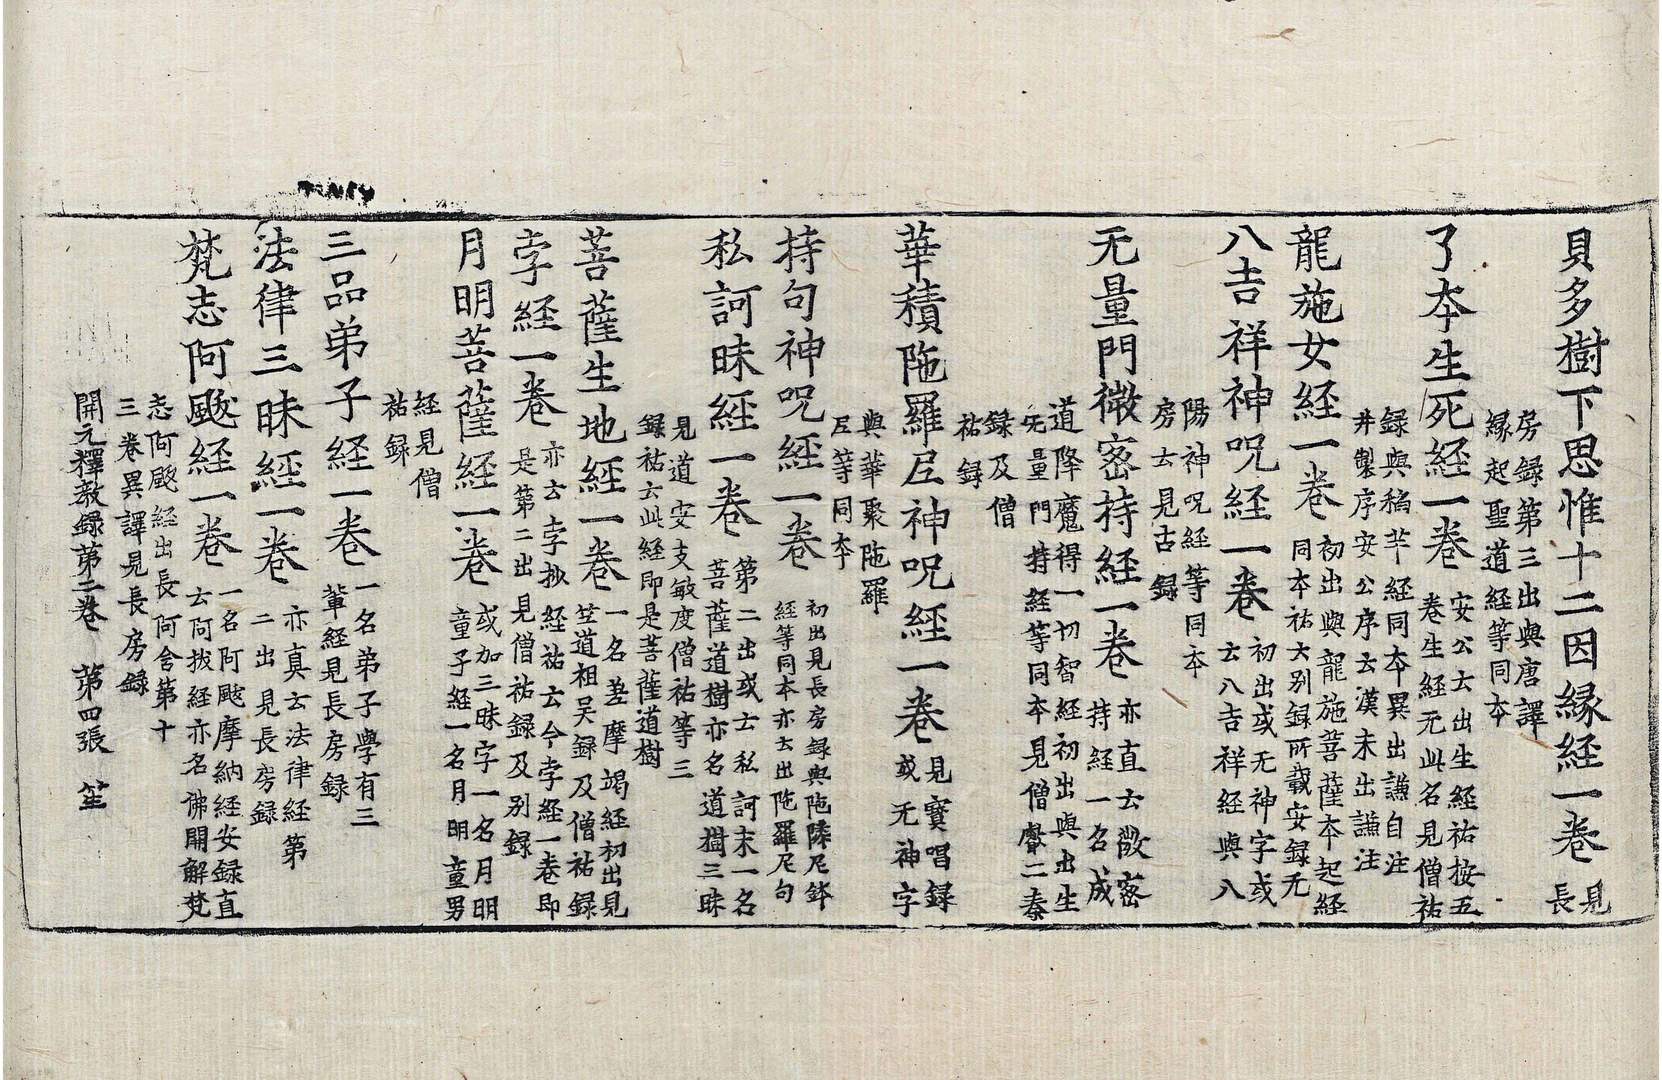 貝多樹下思惟十二因縁経一卷 見長
房録第三出與唐譯縁起聖道経等同本
了本生死経一卷 安公云出生経祐按五卷生経无此名見僧祐
録與稻芉経同本異出謙自注并製序安公序云漢末出謙注
龍施女経一卷 初出與龍施菩薩本起経同本祐大别録所載安録无
八吉祥神呪経一卷 初出或无神字或云八吉祥経與八
陽神呪経等同本房云見古録
无量門微密持経一卷 亦直云微密持経一名成
道降魔得一切智経初出與出生无量門持経等同本見僧叡二秦
録及僧祐録
華積陁羅尼神呪経一卷 見寳唱録或无神字
與華聚陁羅尼等同本
持句神呪経一卷 初出見長房録與陁隣尼鉢経等同本亦云出陁羅尼句
私訶昧経一卷 第二出或云私訶末一名菩薩道樹亦名道樹三昧
見道安支敏度僧祐等三録祐云此経即是菩薩道樹
菩薩生地経一卷 一名差摩竭経初出見笁道祖吴録及僧祐録
孛経一卷 亦云孛抄経祐云今孛経一卷即是第二出見僧祐録及别録
月明菩薩経一卷 或加三昧字一名月明童子経一名月明童男
経見僧祐録
三品弟子経一卷 一名弟子學有三輩経見長房録
法律三昧経一卷 亦真云法律経第二出見長房録
梵志阿颰経一卷 一名阿颰摩納経安録直云阿拔経亦名佛開解梵
志阿颰経出長阿含第十三卷異譯見長房録
開元釋教録第二卷 第四張 笙